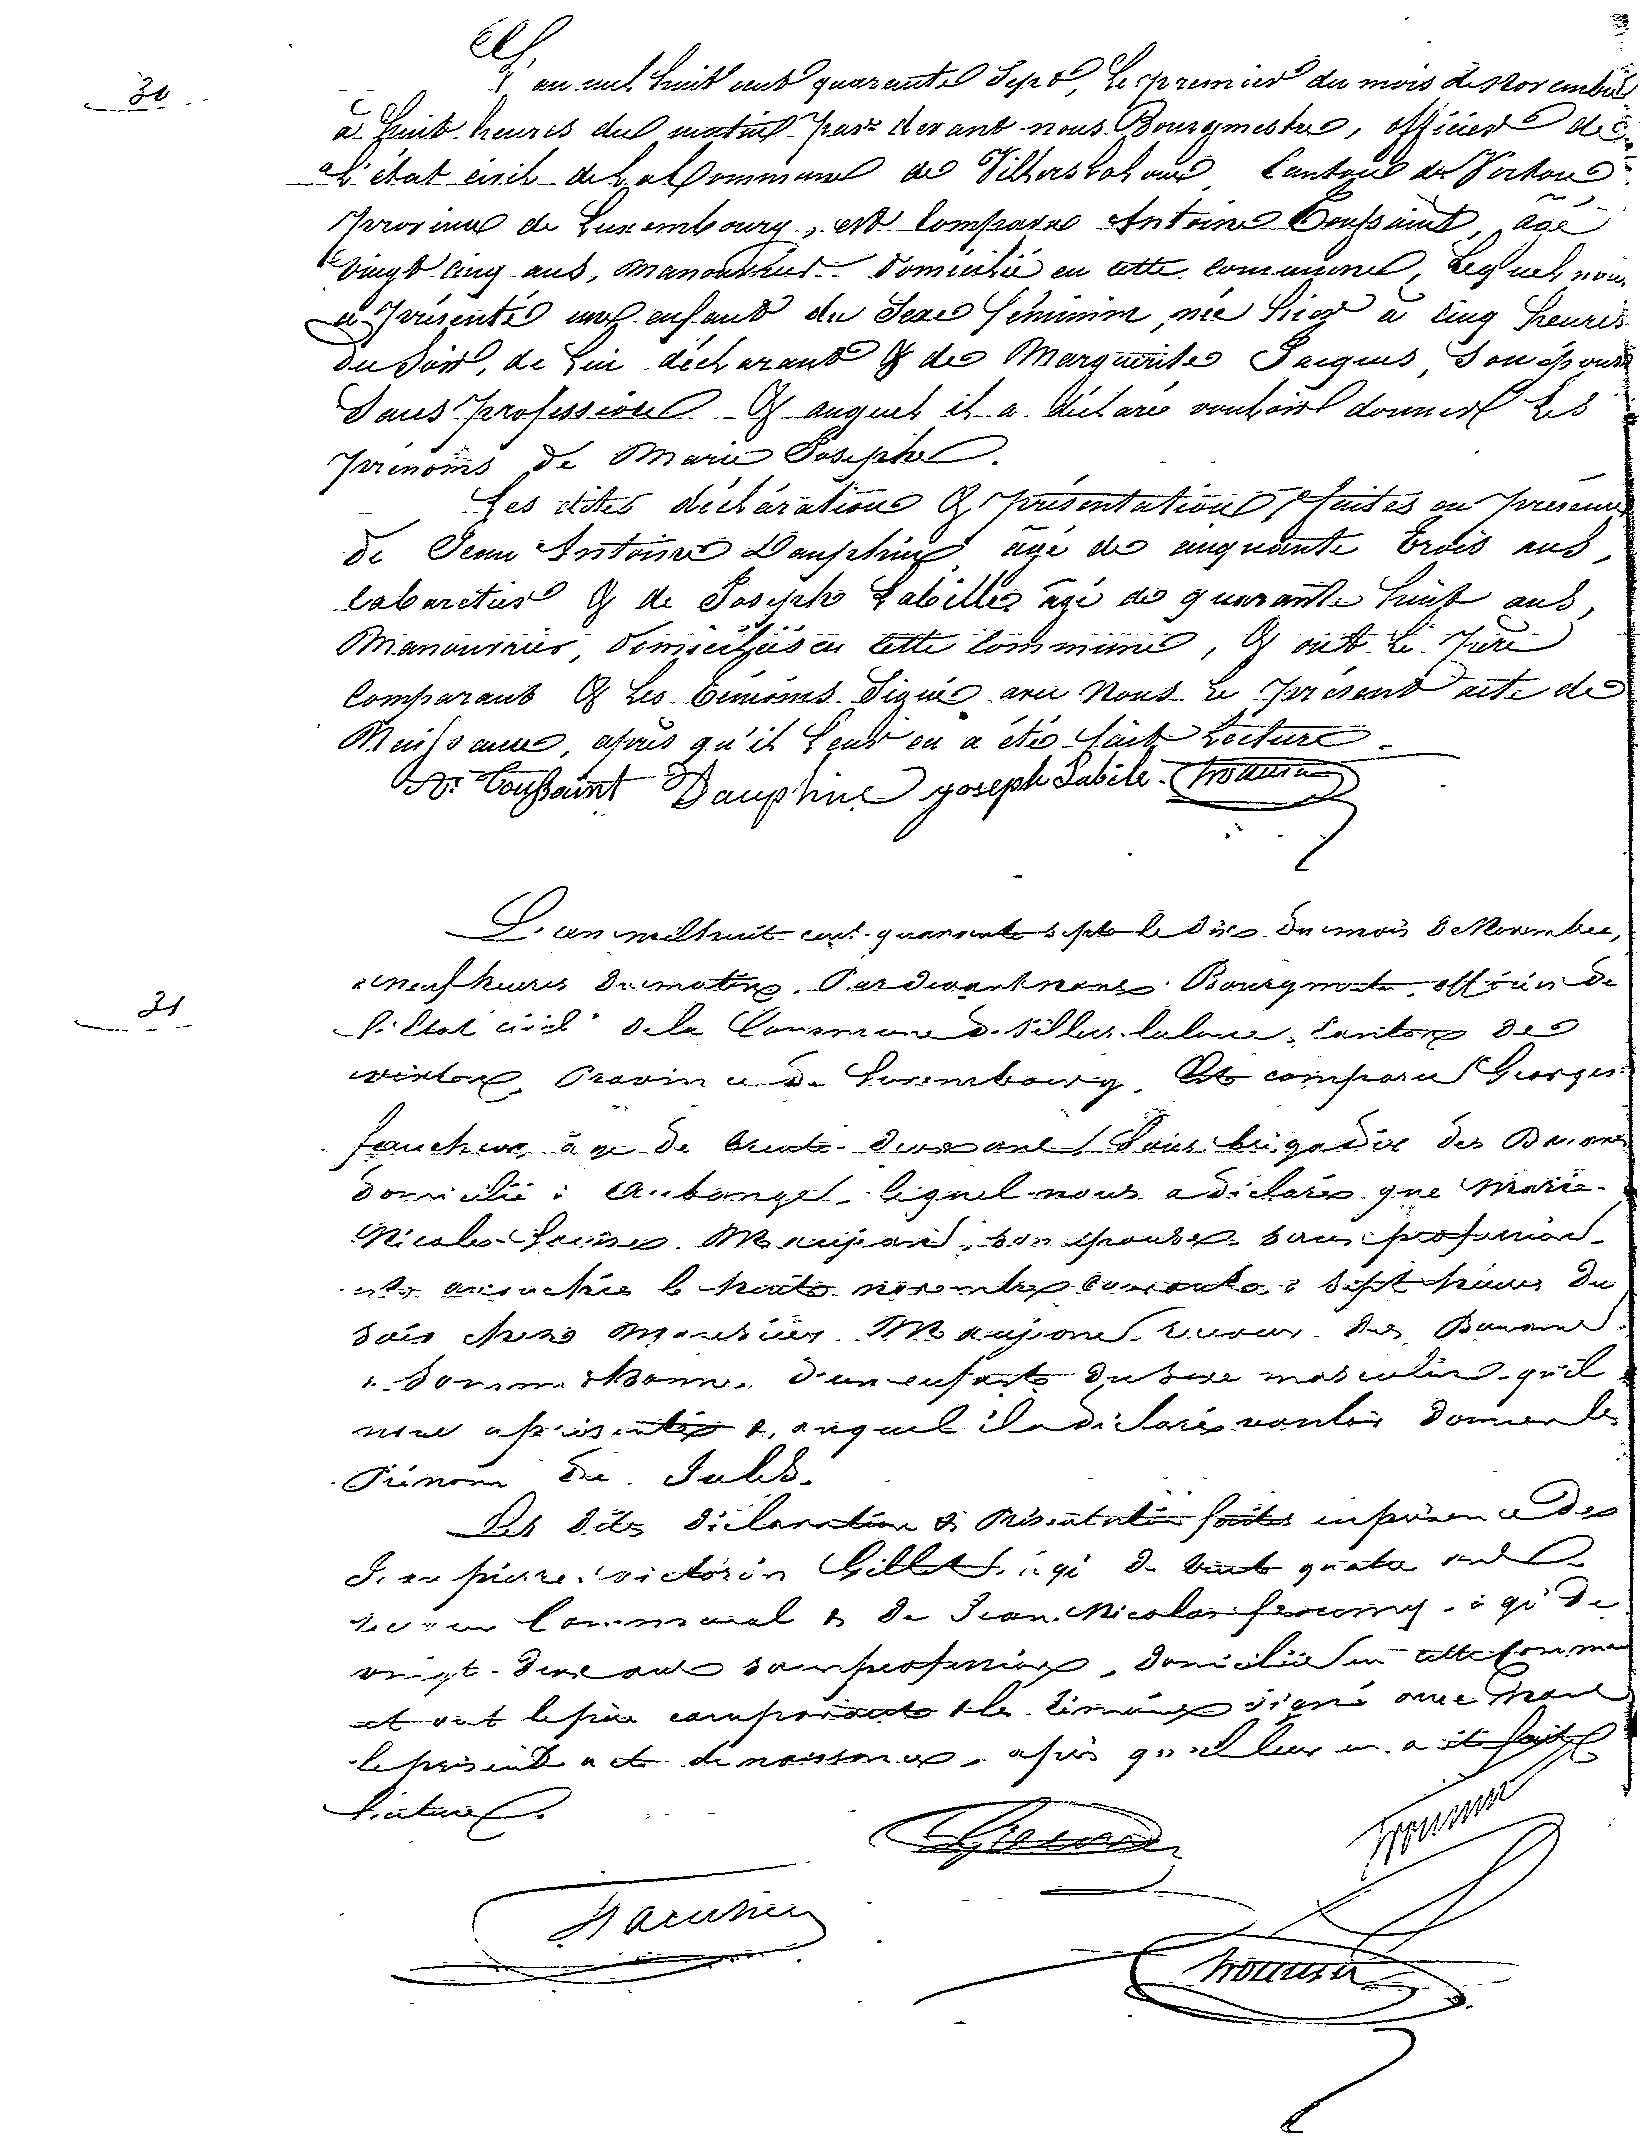 30
L'an mil huit cent quarante Sept, le premier du mois de Novembre
à huit heures du matin par devant nous Bourgmestre, officier de
l'état civil de la Commune de Villers la loue Canton de Virton
Province de Luxembourg, est Comparu Antoine Toussaint, âgé
de vingt cinq ans, manouvrier domicilié en cette commune, lequel nous
a présenté un enfant du Sexe féminin, née hier à cinq heures
du Soir, de lui déclarant & de Marguerite Jacques, Son épouse
Sans profession & auquel il a déclaré vouloir donner les
prénoms de Marie Josephe.
Les dites déclaration & présentation faites en présence
de Jean Antoine Dauphine, âgé de cinquante trois ans,
Cabaretier & de Joseph Labille, âgé de quarante huit ans,
Manouvrier, domiciliés en cette Commune, & ont le Père
Comparant & les témoins Signé avec Nous le présent acte de
Naissance, après qu'il leur en a été fait Lecture
At Toussaint Dauphine joseph Labile
31
L'an mil huit cent quarante sept le dix du mois de Novembre,
à neuf heures du matin. Pardevant nous Bourgmestre officier de
l'état civil de la Commune de Villers laloue, Canton de
virton, Province de Luxembourg, Est comparu Georges
âgé de trente deux ans Sous brigadier des Douanes
domicilié à Aubange lequel nous a déclaré que Marie
Nicole Louise Maujean, son épouse sans profession
est accouchée le huit novembre courant à sept heures du
soir chez Monsieur Maujean receveur des Douanes
d'un enfant du sexe masculin qu'il
nous a présenté & auquel il a déclaré vouloir donner le
Prénom de Jules.
Les dites déclaration & Présentation faites en présence de
Jean pierre victorin Gillet âgé de trente quatre ans
receveur Communal & de Jean Nicolas âgé de
vingt deux ans sans profession, domiciliés en cette Commune
et ont le père comparant & les témoins signé avec Nous
le présent acte de naissance, après qu'il leur en a été fait
Lecture.